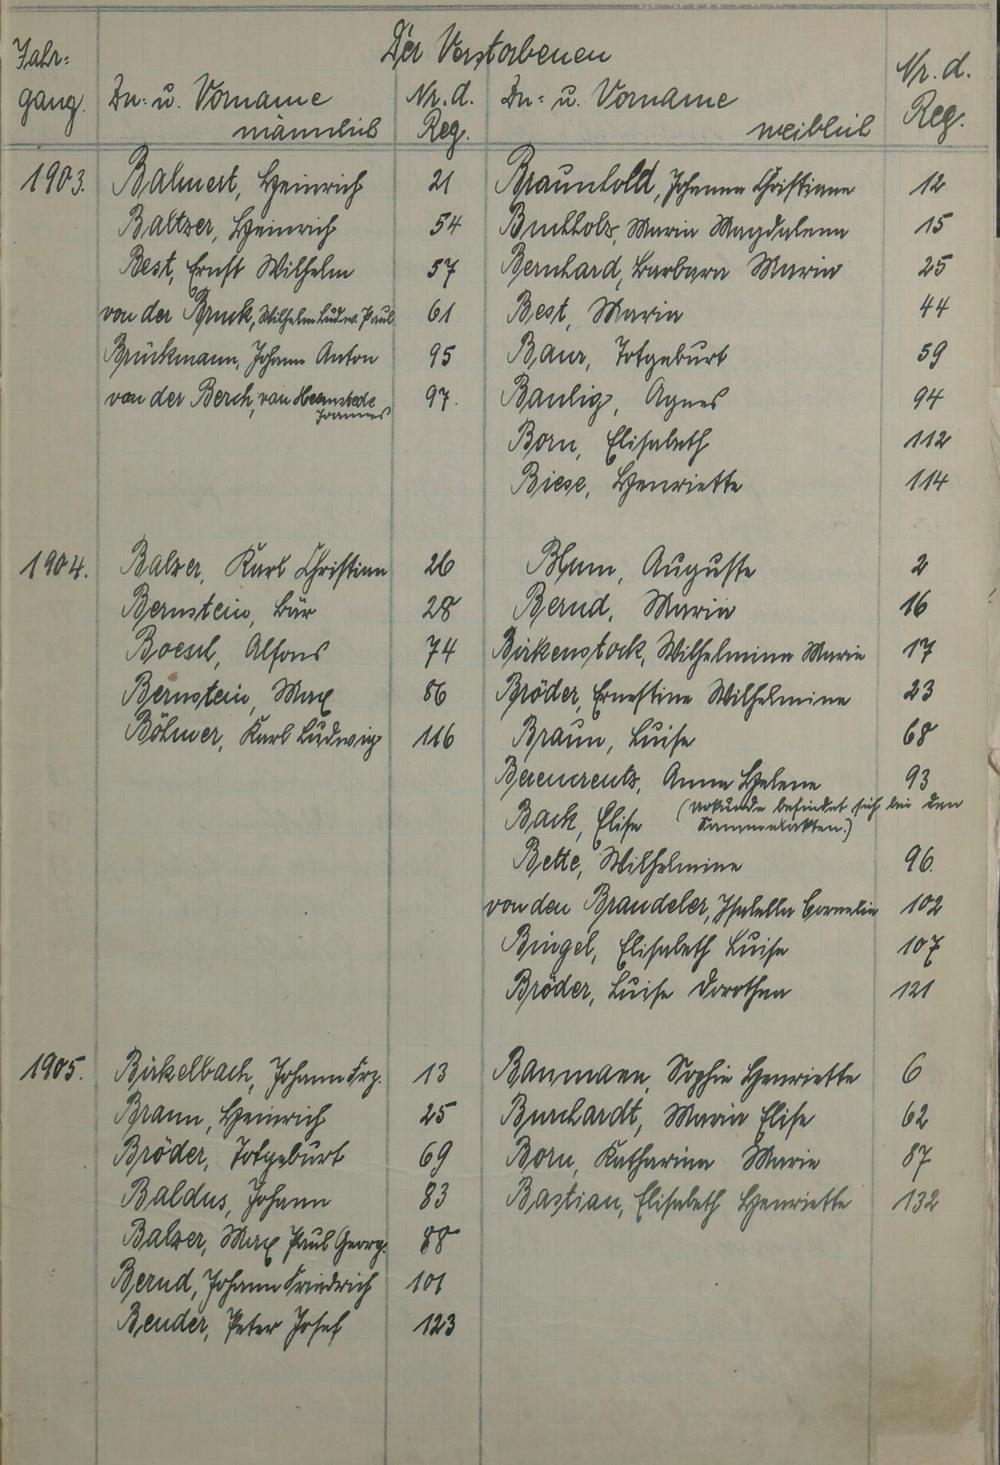 Der Verstorbenen
Jahr-
gang.
Zu- u. Vorname
männlich
Nr. d.
Reg.
Zu- u. Vorname
weiblich
Nr. d.
Reg.
1903. Balmert, Heinrich 21 Braunhold, Johanna Christiane 12
Baltzer, Heinrich 54 Buchholz, Maria Magdalena 15
Best, Ernst Wilhelm 57 Bernhard, Barbara Maria 25
von der Bruck, Wilhelm Ludw. Paul 61 Best, Maria 44
Brückmann, Johann Anton 95 Baur, Totgeburt 59
von der Berch, van Heemstede 97. Baulig, Agnes 94
Joannes
Born, Elisabeth 112
Biese, Henriette 114
1904. Balzer, Karl Christian 26 Blum, Auguste 2
Bernstein, Bär 28 Bernd, Maria 16
Boesch, Alfons 74 Birkenstock, Wilhelmine Marie 17
Bernstein, Max 86 Bröder, Ernestine Wilhelmine 23
Böhmer, Karl Ludwig 116 Braun, Luise 68
Anna Helene 93
Back, Elise (Urkunde befindet sich bei den
Sammelakten.)
Bette, Wilhelmine 96.
von den Brandeler, Isabella Cornelia 102
Bingel, Elisabeth Luise 107
Bröder, Luise Dorothea 121
1905. Birkelbach, Johann Frz. 13 Baumann, Sophie Henriette 6
Braun, Heinrich 25 Burchardt, Maria Elise 62
Bröder, Totgeburt 69 Born, Katharina Marie 87
Baldus, Johann 83 Bastian, Elisabeth Henriette 132
Balzer, Max Paul Georg. 88
Bernd, Johann Friedrich 101
Bender, Peter Josef 123